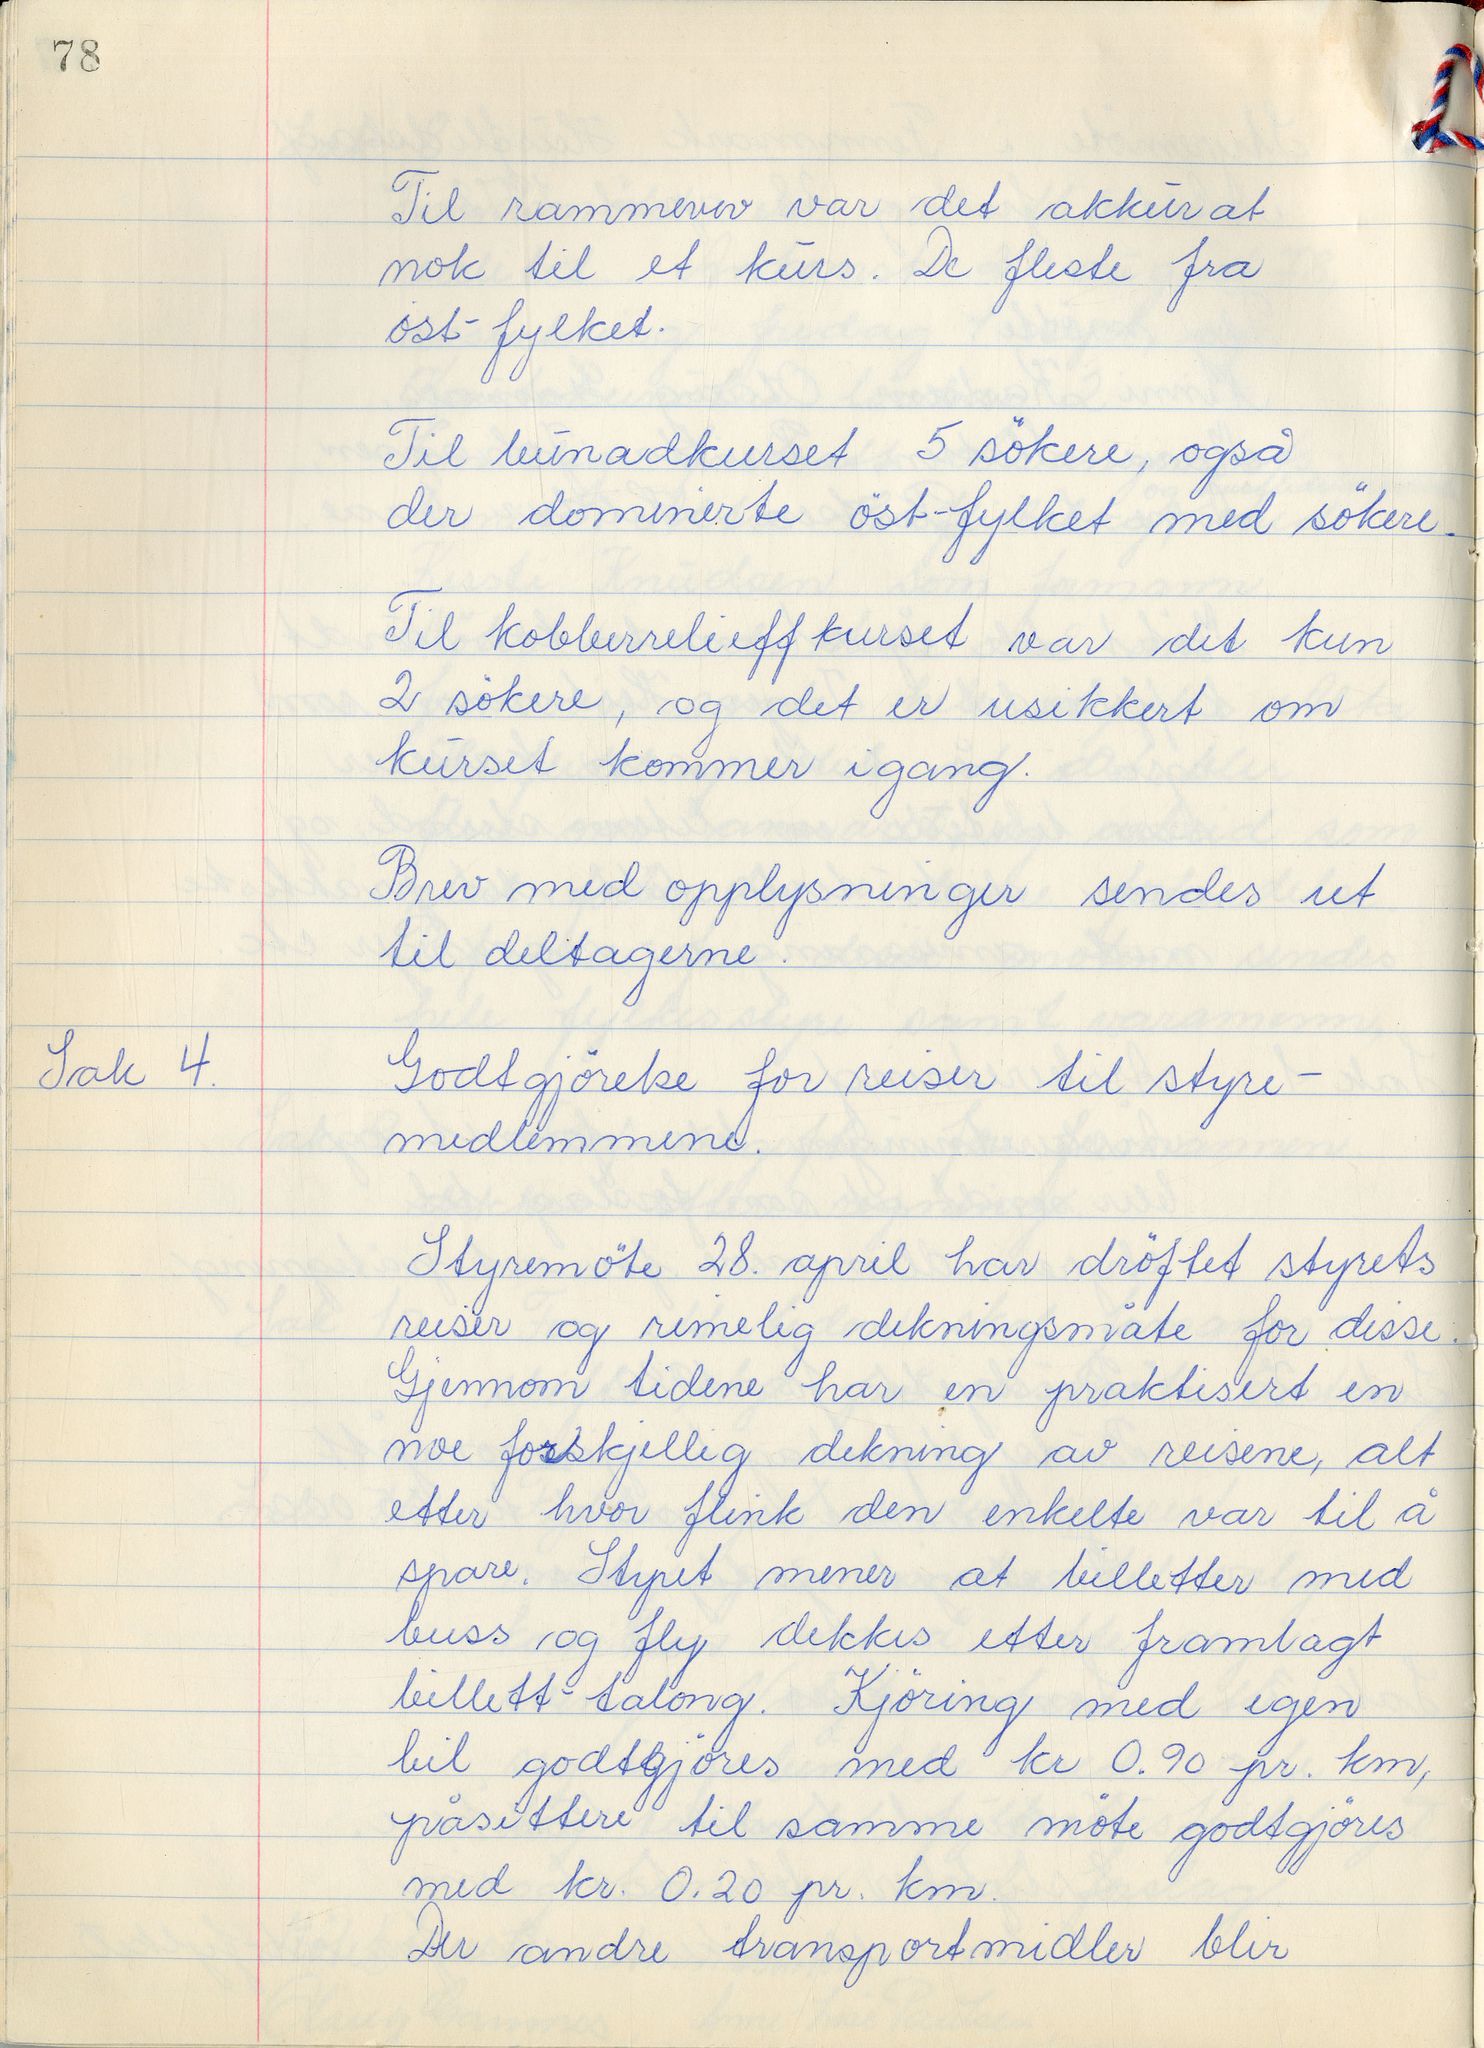 78
Til rammevev var det akkurat
nok til et kurs. De fleste fra
öst-fylket.
Til bunadkurset 5 sökere, også
der dominerte öst-fylket med sökere.
Til kobberrelieffkurset var det kun
2 sökere, og det er usikkert om
kurset kommer igang.
Brev med opplysninger sendes ut
til deltagerne.
Sak 4. Godtgjörelse for reiser til styre-
medlemmene.
Styremöte 28. april har dröftet styrets
reiser og rimelig dekningsmåte for disse.
Gjennom tidene har en praktisert en
noe forskjellig dekning av reisene, alt
etter hvor flink den enkelte var til å
spare. Styret mener at billetter med
buss og fly dekkes etter framlagt
billett-talong. Kjöring med egen
bil godtgjöres med kr 0.90 pr. km,
påsittere til samme möte godtgjöres
med kr. 0.20 pr. km.
Der andre transportmidler blir